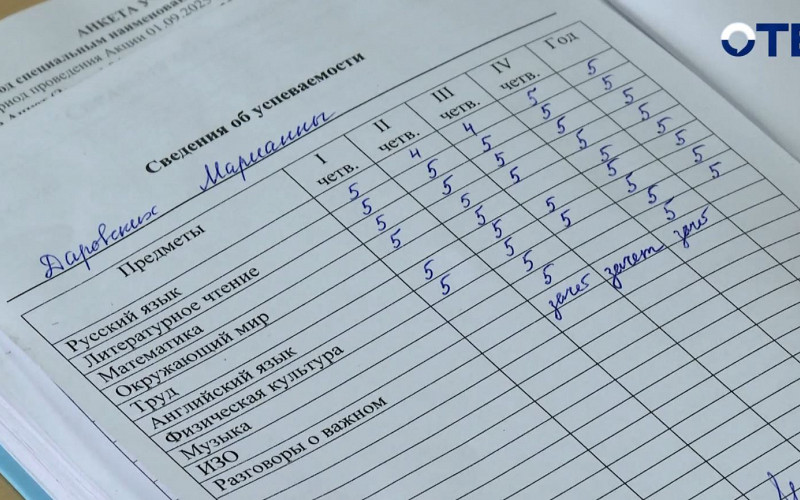 АНКЕТА У
од специальным наименован
риод проведения Акции 01.09.2025
Сведения об успеваемости
Даровских Марианны
Предметы I четв. II четв. III четв. IV четв. Год
Русский язык 5 4 4 5 5
Литературное чтение 5 5 5 5 5
Математика 5 5 5 5 5
Окружающий мир 5 5 5 5 5
Труд 5 5 5 5
Английский язык 5 5 5 5
Физическая культура 5 5 5 5
Музыка 5 5 5 5
ИЗО 5 5 5 5
Разговоры о важном зачёт зачет зачёт
ОТВ